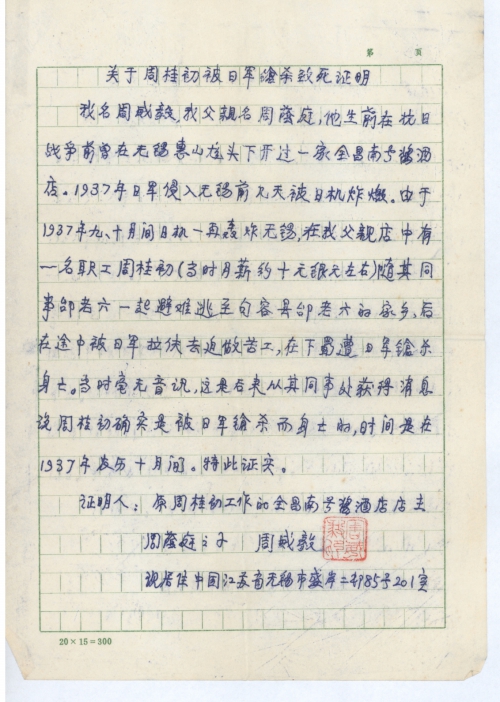 第 页
关于周桂初被日军枪杀致死证明
我名周威毅,我父亲名周荫庭,他生前在抗日
战争前曾在无锡惠山龙头下开过一家全昌南号酱酒
店。1937年日军侵入无锡前几天被日机炸燬。由于
1937年九、十月间日机一再轰炸无锡,在我父亲店中有
一名职工周桂初(当时月薪约十元银元左右)随其同
事邰老六一起避难逃至句容县邰老六的家乡,后
在途中被日军拉伕去迫做苦工,在下蜀遭日军枪杀
身亡。当时毫无音讯,这是后来从其同事处获得消息
说周桂初确实是被日军枪杀而身亡的,时间是在
1937年农历十月间。特此证实。
证明人:原周桂初工作的全昌南号酱酒店店主
周荫庭之子 周威毅
现居住中国江苏省无锡市盛岸二村85号201室
20×15=300